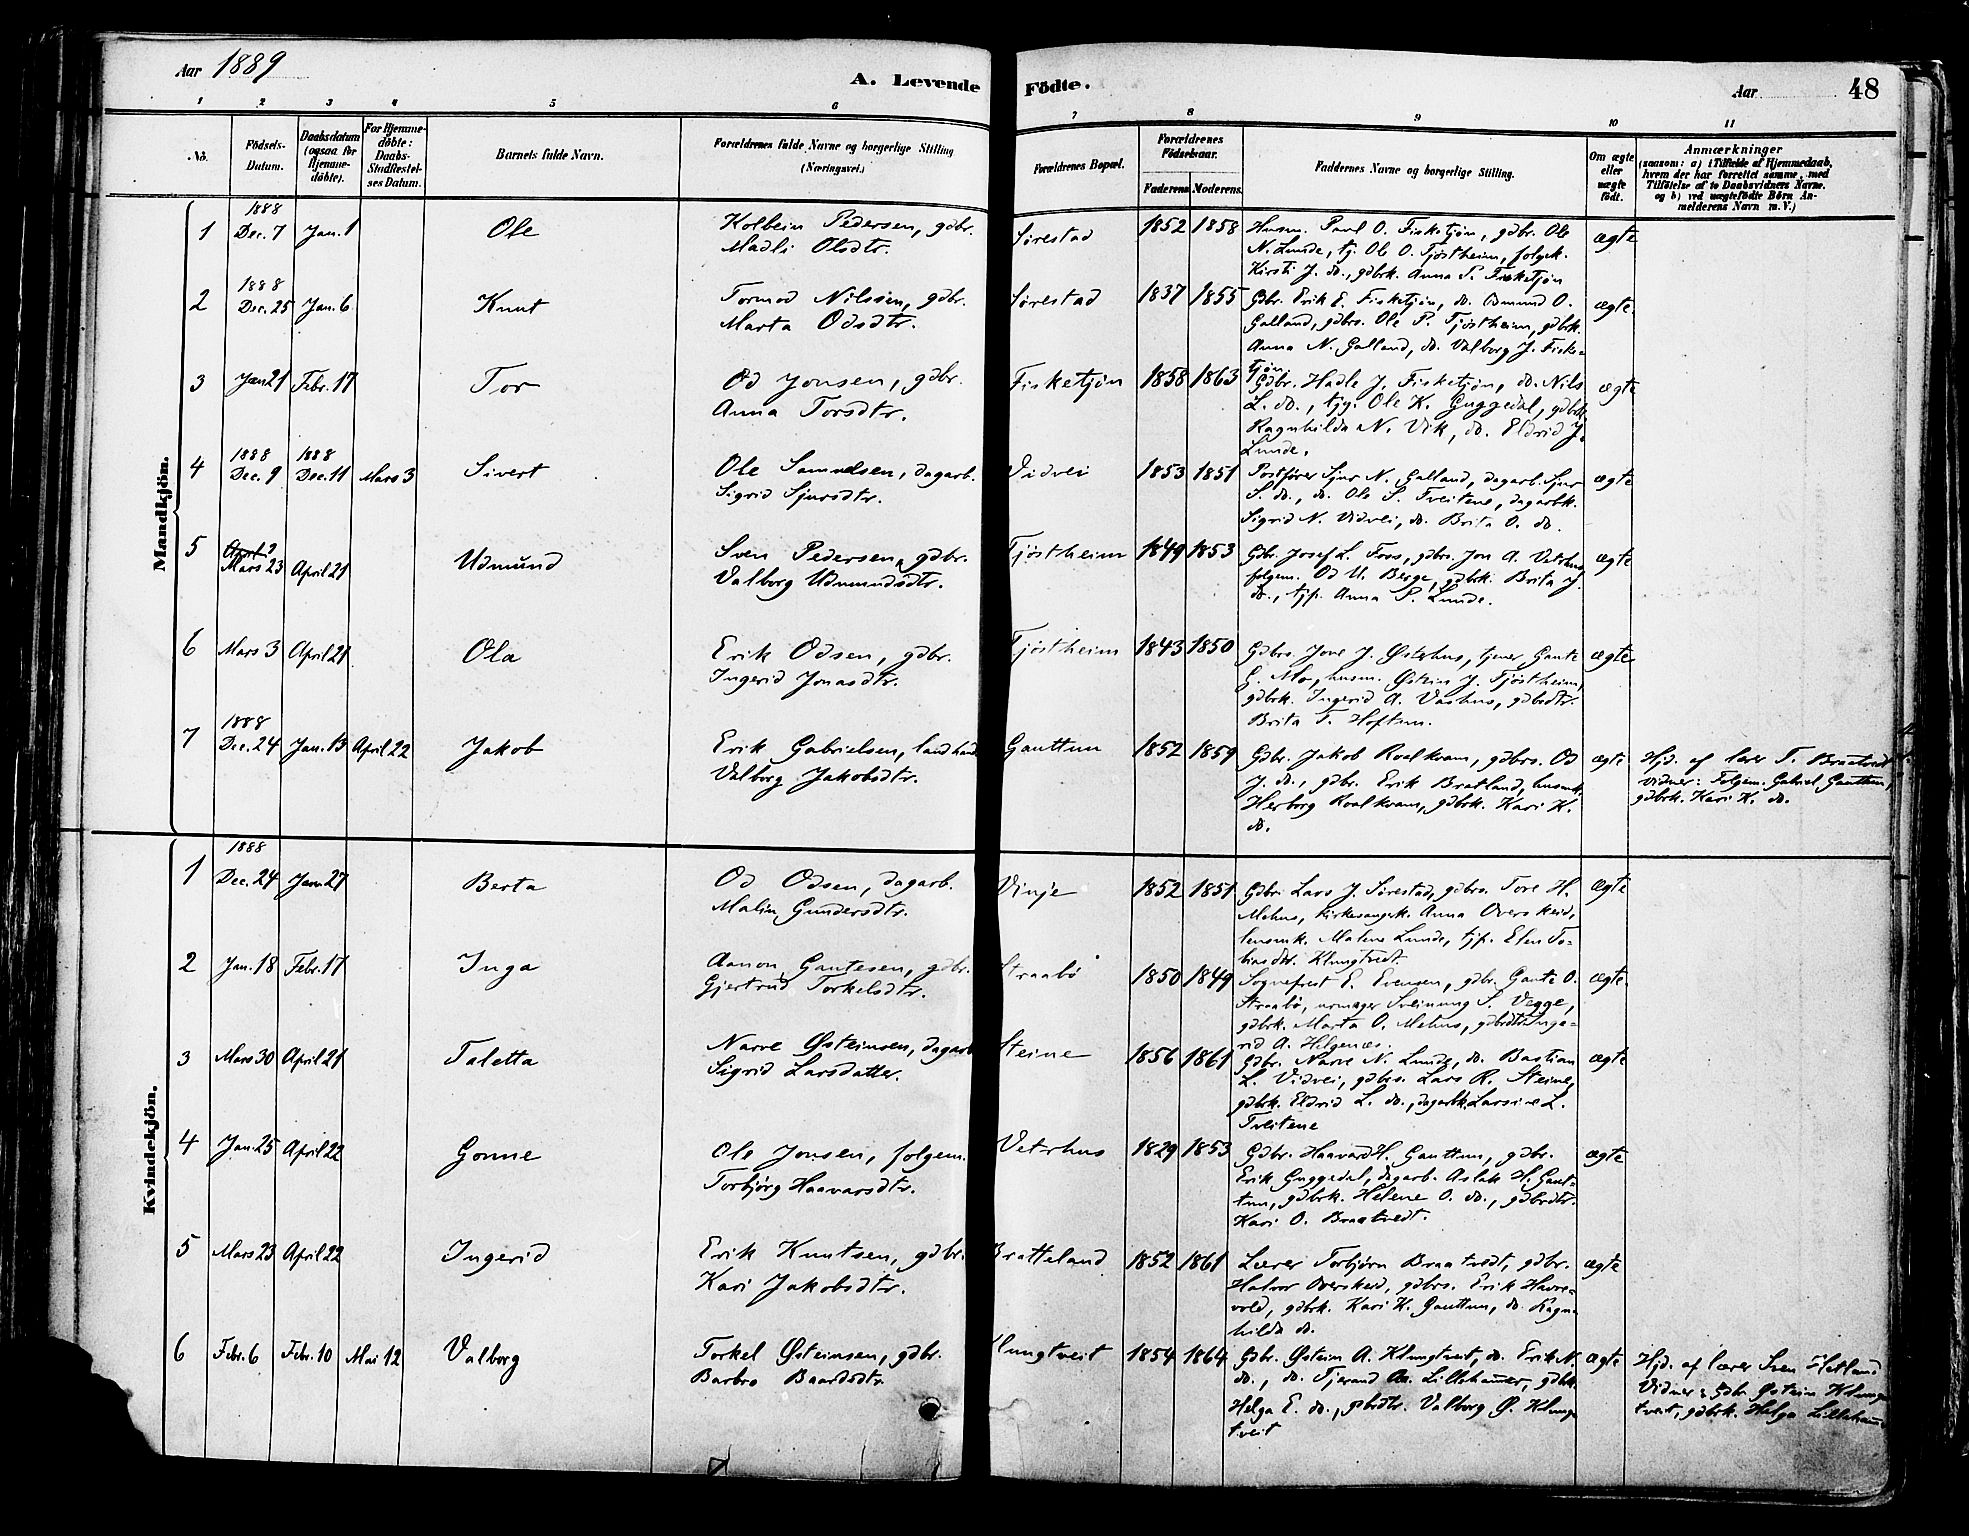 Aar 1889
A. Levende Fødte.
Aar 48
1 2 3 4 5 6 7 8 9 10 11
No.
Fødsels-
Datum.
Daabsdatum
(ogsaa for
Hjemme-
døbte).
For Hjemme-
døbte:
Daabs-
Stadfæstel-
ses Datum.
Barnets fulde Navn.
Forældrenes fulde Navne og borgerlige Stilling
(Næringsvei.)
Forældrenes Bopæl.
Forældrenes
Fødselsaar.
Faderens Moderens.
Faddernes Navne og borgerlige Stilling.
Om ægte
eller
uægte
født.
Anmærkninger
(saasom: a) i Tilfælde af Hjemmedaab,
hvem der har forrettet samme, med
Tilføielse af to Daabsvidners Navne,
og b) ved uægtefødte Børn An-
melderens Navn m. V.)
Mandkjøn.
1
1888
Dec. 7 Jan. 1
Ole
Kolbein Pedersen, gdbr.
Madli Olsdtr.
Sørestad
1852 1858
Husm. Paul O. Fisketjøn, gdbr. Ole
N. Lunde, tj. Ole O. Tjøstheim, folgek.
Kirsti J. do., gdbrk. Anna P. Fisketjøn
ægte
2
1888
Dec. 25 Jan. 6
Knut
Tormod Nilssen, gdbr.
Marta Odsdtr.
Sørestad
1837 1855
Gdbr. Erik E. Fisketjøn, do. Osmund O.
Galland, gdbrs. Ole P. Tjøstheim, gdbrk.
Anna N. Galland, do. Valborg J. Fiske-
tjøn
ægte
3
Jan 21 Febr. 17
Tor
Od Jonsen, gdbr.
Anna Torsdtr.
Fisketjøn
1858 1863
Gdbr. Hadle J. Fisketjøn, do. Nils
L. do., tjg. Ole K. Guggedal, gdbrk.
Ragnhilda N. Vik, do. Eldrid J.
Lunde.
ægte
4
1888 1888
Dec. 9 Dec. 11 Mars 3
Sivert
Ole Samuelsen, dagarb.
Sigrid Sjursdtr.
Vidvei
1853 1851
Postfører Sjur N. Galland, dagarb. Sjur
S. do., do. Ole S. Tveitene, dagarbk.
Sigrid N. Vidvei, do. Brita O. do.
ægte
5
Mars 23 April 21
Udmund
Sven Pedersen, gdbr.
Valborg Udmundsdtr.
Tjøstheim
1849 1853
Gdbr. Josef L. Foss, gdbrs. Jon A. Veterhus
folgem. Od U. Berge, gdbrk. Brita J.
do., tjp. Anna P. Lunde.
ægte
6
Mars 3 April 21
Ola
Erik Odsen, gdbr.
Ingerid Jonasdtr.
Tjøstheim
1843 1850
Gdbrs. Jone J. Østerhus, tjener Gaute
G. Mo, husm. Østein J. Tjøstheim,
gdbrk. Ingerid A. Vashus, gdbrdtr.
Brita T. Hoftun.
ægte
7
1888
Dec. 24 Jan. 13 April 22
Jakob
Erik Gabrielsen, landhand
Valborg Jakobsdtr.
Gauttun
1852 1859
Gdbr. Jakob Roalkvam, gdbrs. Od
J. do., gdbr. Erik Bratland, husmk.
Herborg Roalkvam, gdbrk. Kari K.
do.
ægte
Hjd. af lærer T. Braatvedt
Vidner: Folgem. Gabriel Gauttun,
gdbrk. Kari K. do.
Kvindekjøn.
1
1888
Dec. 24 Jan. 27
Berta
Od Odsen, dagarb.
Malin Gundersdtr.
Vinje
1852 1851
Gdbr. Lars J. Sørestad, gdbrs. Tore H.
Mehus, kirkesangerk. Anna Overskeid,
lensmk. Malene Lunde, tjp. Elen To-
biasdtr. Klungtvedt.
ægte
2
Jan. 18 Febr. 17
Inga
Aanon Gautesen, gdbr.
Gjertrud Torkelsdtr.
Straabø
1850 1849
Sogneprest E. Evensen, gdbr. Gaute O.
Straabø, urmager Sveinung S. Vegge,
gdbrk. Marta O. Mehus, gdbrdtr. Inge-
rid A. Helgenæs.
ægte.
3
Mars 30 April 21
Taletta
Narve Østeinsen, dagarb
Sigrid Larsdatter.
Steine
1856 1861
Gdbr. Narve N. Lunde, do. Bastian
L. Vidvei, gdbrs. Lars R. Steine,
gdbrk. Eldrid L. do., dagarbk. Larsine L.
Tveitene
ægte
4
Jan. 25 April 22
Gonne
Ole Jonsen, folgem.
Torbjørg Haavarsdtr.
Veterhus
1829 1853
Gdbr. Haavard H. Gauttun, gdbr.
Erik Guggedal, dagarb. Aslak H. Gaut-
tun, gdbrk. Helene O. do., gdbrdtr.
Kari O. Braatvedt.
ægte
5
Mars 23 April 22
Ingerid
Erik Knutsen, gdbr.
Kari Jakobsdtr.
Bratteland
1852 1861
Lærer Torbjørn Braatvedt, gdbr.
Halvor Overskeid, gdbrs. Erik Havre-
vold, gdbrk. Kari K. Gauttun, do. Ragn-
hilda do.
ægte
6
Febr. 6 Febr. 10 Mai 12
Valborg
Torkel Østeinsen, gdbr.
Barbro Baardsdtr.
Klungtveit
1854 1864
Gdbr. Østein A. Klungtveit, do. Erik N.
do., do. Tjerand Aa. Lillehammer, gdbrk.
Helga E. do., gbrdtr. Valborg Ø. Klung-
tveit
ægte
Hjd. af lærer Sven Hetland
Vidner: Gdbr. Østein Klung-
tveit, gdbrk. Helga Lilleham